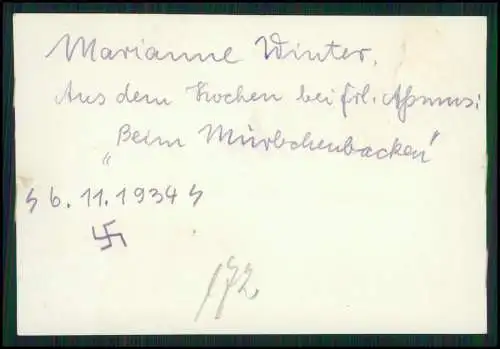 Marianne Winter.
Aus dem Kochen bei Frl. Aßmus:
„Beim Mürbchenbacken"
ϟ 6. 11. 1934 ϟ
卐
172